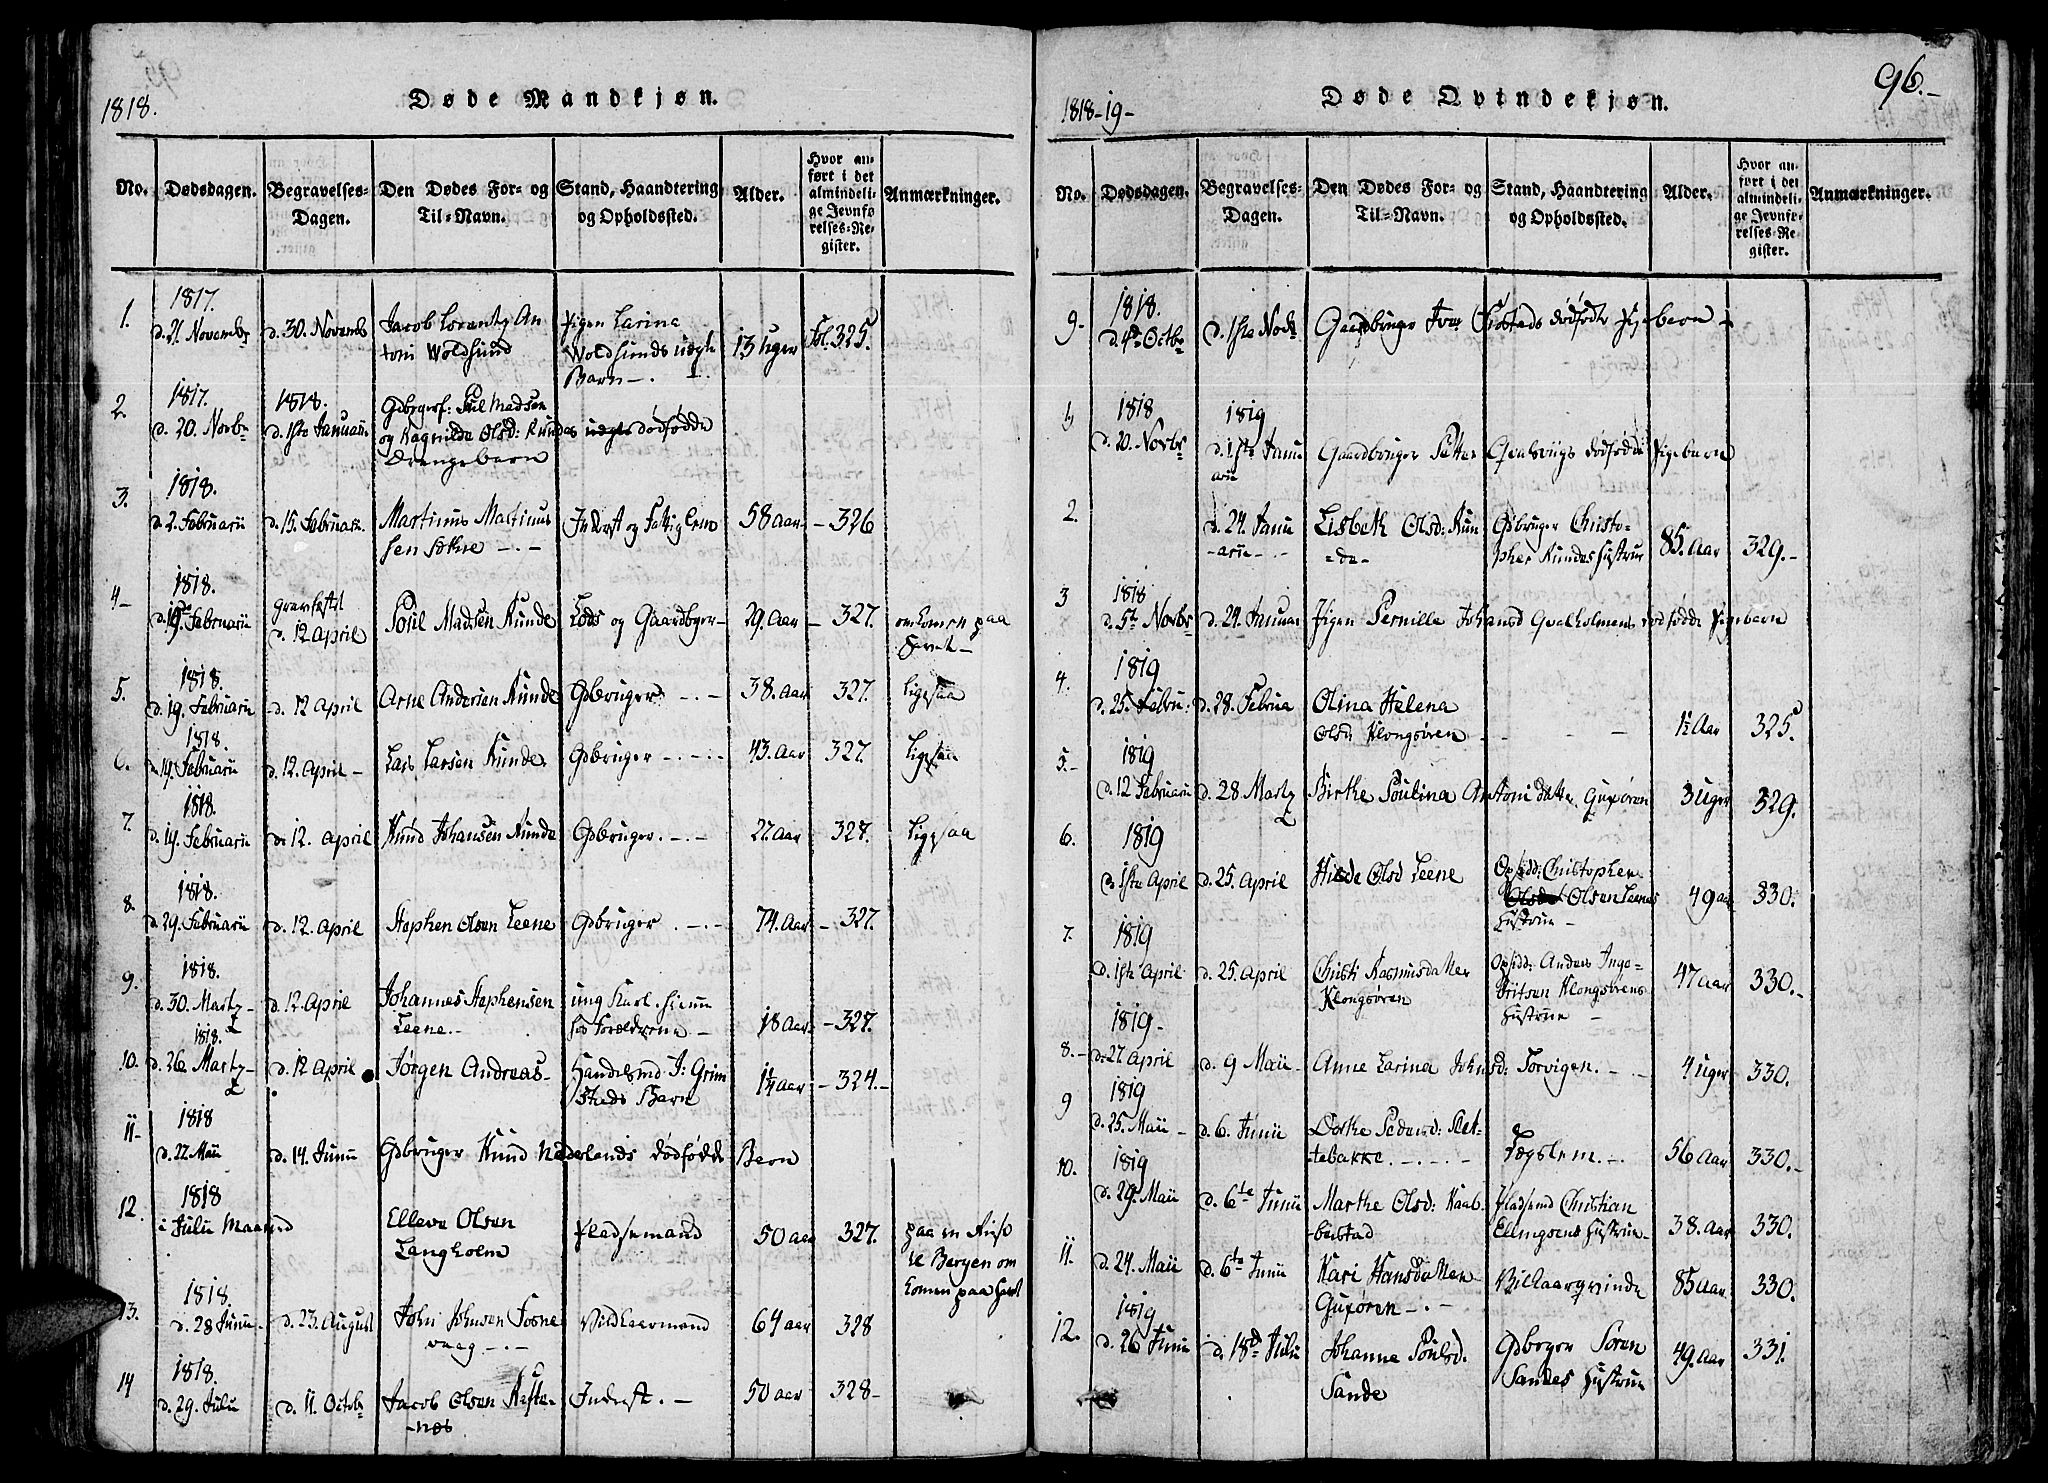 1818.
Døde Mandkjøn.
No.
Dødsdagen.
Begravelses-Dagen.
Den Dødes For- og Til-Navn.
Stand, Haandtering og Opholdssted.
Alder.
Hvor anført i det almindelige Jevnførelses-Register.
Anmærkninger.
1. 1817.
d. 21. Novembr d. 30. Novemb Jacob Lorentz An Pigen Larina
toni Woldsund Woldsunds uægte 13 Uger Fol. 325.
Barn
2. 1817. 1818. Gdbrgers: Poul Madsen
d. 20. Novbr d. 1ste Januarii og Ragnilde Olsd: Rundes dødfødde
Drengebarn
3. 1818.
d. 2. Februarii d. 15. Februarii Martinus Martinus Inderst og Fattiglem 58 Aar 326
sen
4 1818. Gravfæstet
d. 19. Februarii d. 12 April Poul Madsen Runde Lods og Gaardbrger 29. Aar 327. omkomen paa
Havet
5. 1818.
d. 19. Februarii d. 12 April Arne Andersen Runde Gdbruger 38. Aar 327. ligesaa
1818.
d. 19. Februarii d. 12. April Lars Larsen Runde Gdbruger 43. Aar 327. ligesaa
7. 1818.
d. 19. Februarii d. 12. April Knud Johansen Runde Gdbruger 27. Aar 327. ligesaa
8. 1818.
d. 29. Februarii d. 12. April Stephen Olsen Leene Gdbruger 74. Aar 327.
9. 1818.
d. 30. Marty d. 12 April Johannes Stephensen ung Karl hiemme
Leene hos Forældrene 18 Aar 327.
10. 1818.
d. 26. Marty d. 12 April Jørgen Andreas Handelsmd J: Grim
steds Barn 1¼ Aar 324.
11 1818
d. 22. Maii d. 14. Junii Gdbruger Knud Nederlands dødfødde Barn
12. 1818
i Julii Maaned Elleve Olsen Pladsemand 50 aar 327. paa en Reise
Langholm til Bergen om
komen paa Havet
13. 1818.
d. 28 Junii d. 23. August John Johnsen Fosne Vilkaarmand 64 aar 328
vaag
14 1818.
d. 29. Julii d. 11. Octobr Jacob Olsen Inderst 50 aar 328
næs
1818-19-
Døde Qvindekjøn.
96.
No.
Dødsdagen.
Begravelses-Dagen.
Den Dødes For- og Til-Navn.
Stand, Haandtering og Opholdssted.
Alder.
Hvor anført i det almindelige Jevnførelses-Register.
Anmærkninger.
9 1818.
d. 4de Octbr d. 1ste Novbr Gaardbruger Iver dødfødte Pigebarn
1 1818 1819
d. 20. Novbr d. 1ste Janu Gaardbruger Petter Qvalsvigs dødfødde Pigebarn
arii
2. d. 24. Janu Lisbeth Olsd: Run Gdbruger Christo-
arii de pher Rundes Hustrue 85. Aar 329.
3 1818
d. 5te Novbr d. 24. Januar Pigen Pernille Johansd Qvalholmens dødfødde Pigebarn
4. 1819
d. 25. Febru: d. 28. Februa Olina Helena
Olsd: Klongsøren 1½ Aar 325.
5. 1819
d. 12 Februarii d. 28 Marty Birthe Poulina Antoni datter Gurøren 3 Uger 329.
6. 1819
d. 1ste April d. 25. April Hilde Olsd Leene Opsidd: Christopher
Olsen Leenes 49 aar 330.
Hustrue
7. 1819
d. 1ste April d. 25. April Christi Rasmusdatter Opsidd: Anders Inge-
Klongsøren britsen Klongsørens 47 Aar 330.
Hustrue
8. 1819
d. 27 April d. 9 Maii Anne Larina Johnsd: Torvigen 4 Uger 330.
9 1819
d. 25. Maii d. 6. Junii Dorthe Pedersd: Slet-
tebakke Lægslem 56 Aar 330.
10. 1819
d. 29. Maii d. 6te Junii Marthe Olsd: Kaab- Pladsemd Christian
beistad Ellingsens Hustrue 38. Aar 330.
11. d. 24. Maii d. 6te Junii Kari Hansdatter Vilkaarqvinde 85 Aar 330.
Gurøren
12. 1819
d. 26 Junii d. 18de Julii Johanne Poulsd. Gdbrger Søren 49. Aar 331.
Sande Sandes Hustrue